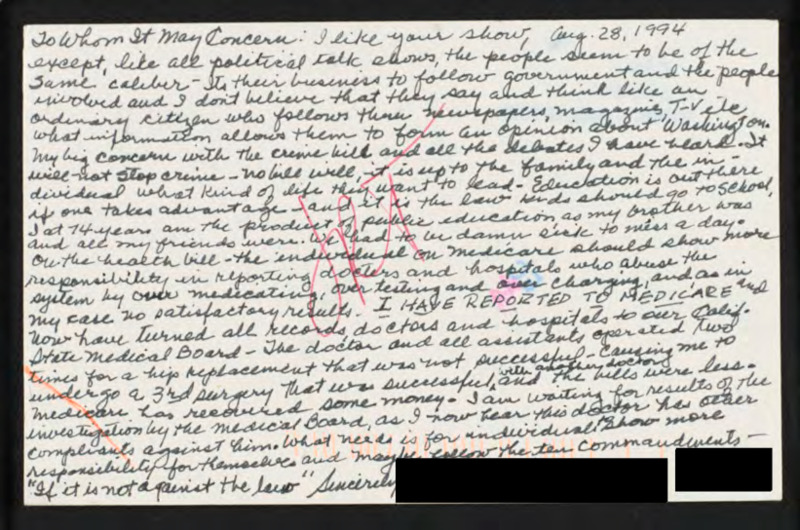 To Whom It May Concern: I like your show, Aug. 28, 1994
except, like all political talk shows, the people seem to be of the
same caliber - Its their business to follow government and the people
involved and I don't believe that they say and think like an
ordinary citizen who follows three newspapers, magazines, T-V etc
what information allows them to form an opinion about Washington.
My big concern with the crime bill and all the debates I have heard. It
will not stop crime - no bill will, it is up to the family and the in-
dividual what kind of life they want to lead - Education is out there
if one takes advantage - and it is the law kids should go to school,
I at 74 years am the product of public education as my brother was
and all my friends were. We had to be damn sick to miss a day.
On the health bill - the individual on medicare should show more
responsibility in reporting doctors and hospitals who abuse the
system by over medicating, over testing and over charging, and, as in
my case no satisfactory results. I HAVE REPORTED TO MEDICARE and
now have turned all records, doctors and hospitals to our Calif.
State Medical Board - The doctor and all assistants operated two
times for a hip replacement that was not successful - causing me to
undergo a 3rd surgery that was successful, with another doctor, and the bills were less.
Medicare has recovered some money. I am waiting for results of the
investigation by the Medical Board, as I now hear this doctor has other
complaints against him. What needs is for individuals show more
responsibility for themselves and maybe follow the ten commandments -
"If it is not against the law" Sincerely